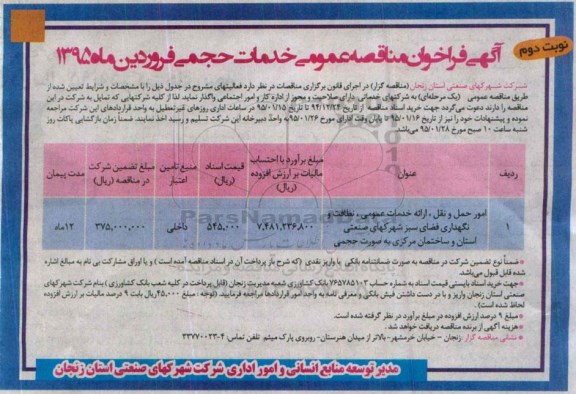 نوبت دوم
آگهی فراخوان مناقصه عمومی خدمات حجمی فروردین ماه ۱۳۹۵
شرکت شهرکهای صنعتی استان زنجان (مناقصه گزار) در اجرای قانون برگزاری مناقصات در نظر دارد فعالیتهای مشروح در جدول ذیل را با مشخصات و شرایط تعیین شده از
طریق مناقصه عمومی (یک مرحله‌ای) به شرکتهای خدماتی دارای صلاحیت و مجوز از اداره کار و امور اجتماعی واگذار نماید. لذا از کلیه شرکتهایی که تمایل به شرکت در این
مناقصه را دارند دعوت می‌گردد جهت خرید اسناد مناقصه از تاریخ ۹۴/۱۲/۲۴ تا تاریخ ۹۵/۰۱/۱۵ در ساعات اداری روزهای غیرتعطیل به واحد قراردادهای این شرکت مراجعه
نموده و پیشنهادات خود را نیز از تاریخ ۹۵/۰۱/۱۶ تا پایان وقت اداری مورخ ۹۵/۰۱/۲۶ به واحد دبیرخانه این شرکت تسلیم و رسید اخذ نمایند. ضمنا زمان بازگشایی پاکات روز
شنبه ساعت ۱۰ صبح مورخ ۹۵/۰۱/۲۸ می‌باشد.
ردیف عنوان مبلغ برآورد با احتساب مالیات بر ارزش افزوده (ریال) قیمت اسناد (ریال) منبع تامین اعتبار مبلغ تضمین شرکت در مناقصه (ریال) مدت پیمان
۱ امور حمل و نقل ، ارائه خدمات عمومی ، نظافت و نگهداری فضای سبز شهرکهای صنعتی استان و ساختمان مرکزی به صورت حجمی ۷,۴۸۱,۲۳۶,۸۰۰ ۵۴۵,۰۰۰ داخلی ۳۷۵,۰۰۰,۰۰۰ ۱۲ماه
ParsNamadData
پایگاه اطلاع رسانی مناقصه و مزایده
* ضمناً نوع تضمین شرکت در مناقصه به صورت ضمانتنامه بانکی یا واریز نقدی (که شرح باز پرداخت آن در اسناد مناقصه آمده است ) و یا اوراق مشارکت بی نام به مبالغ اشاره
شده قابل قبول می‌باشد.
* جهت خرید اسناد بایستی قیمت اسناد به شماره حساب ۷۶۵۷۸۵۱۰۳ بانک کشاورزی شعبه مدیریت زنجان (قابل پرداخت در کلیه شعب بانک کشاورزی ) بنام شرکت شهرکهای
صنعتی استان زنجان واریز و با در دست داشتن فیش بانکی و معرفی نامه به واحد امور قراردادها مراجعه فرمایید. (توجه : مبلغ ۴۵,۰۰۰ریال بابت ۹ درصد مالیات بر ارزش افزوده
لحاظ شده است).
* مبلغ ۹ درصد ارزش افزوده در مبلغ برآورد در نظر گرفته شده است.
* هزینه آگهی از برنده مناقصه دریافت خواهد شد .
* نشانی مناقصه گزار :زنجان – خیابان خرمشهر-بالاتر از میدان هنرستان- روبروی پارک میثم تلفن تماس: ۴-۳۳۷۷۰۰۲۳
مدیر توسعه منابع انسانی و امور اداری شرکت شهرکهای صنعتی استان زنجان